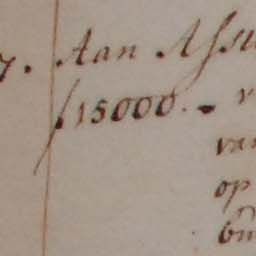 7. Aan Assu
ƒ15000.- v
van
op